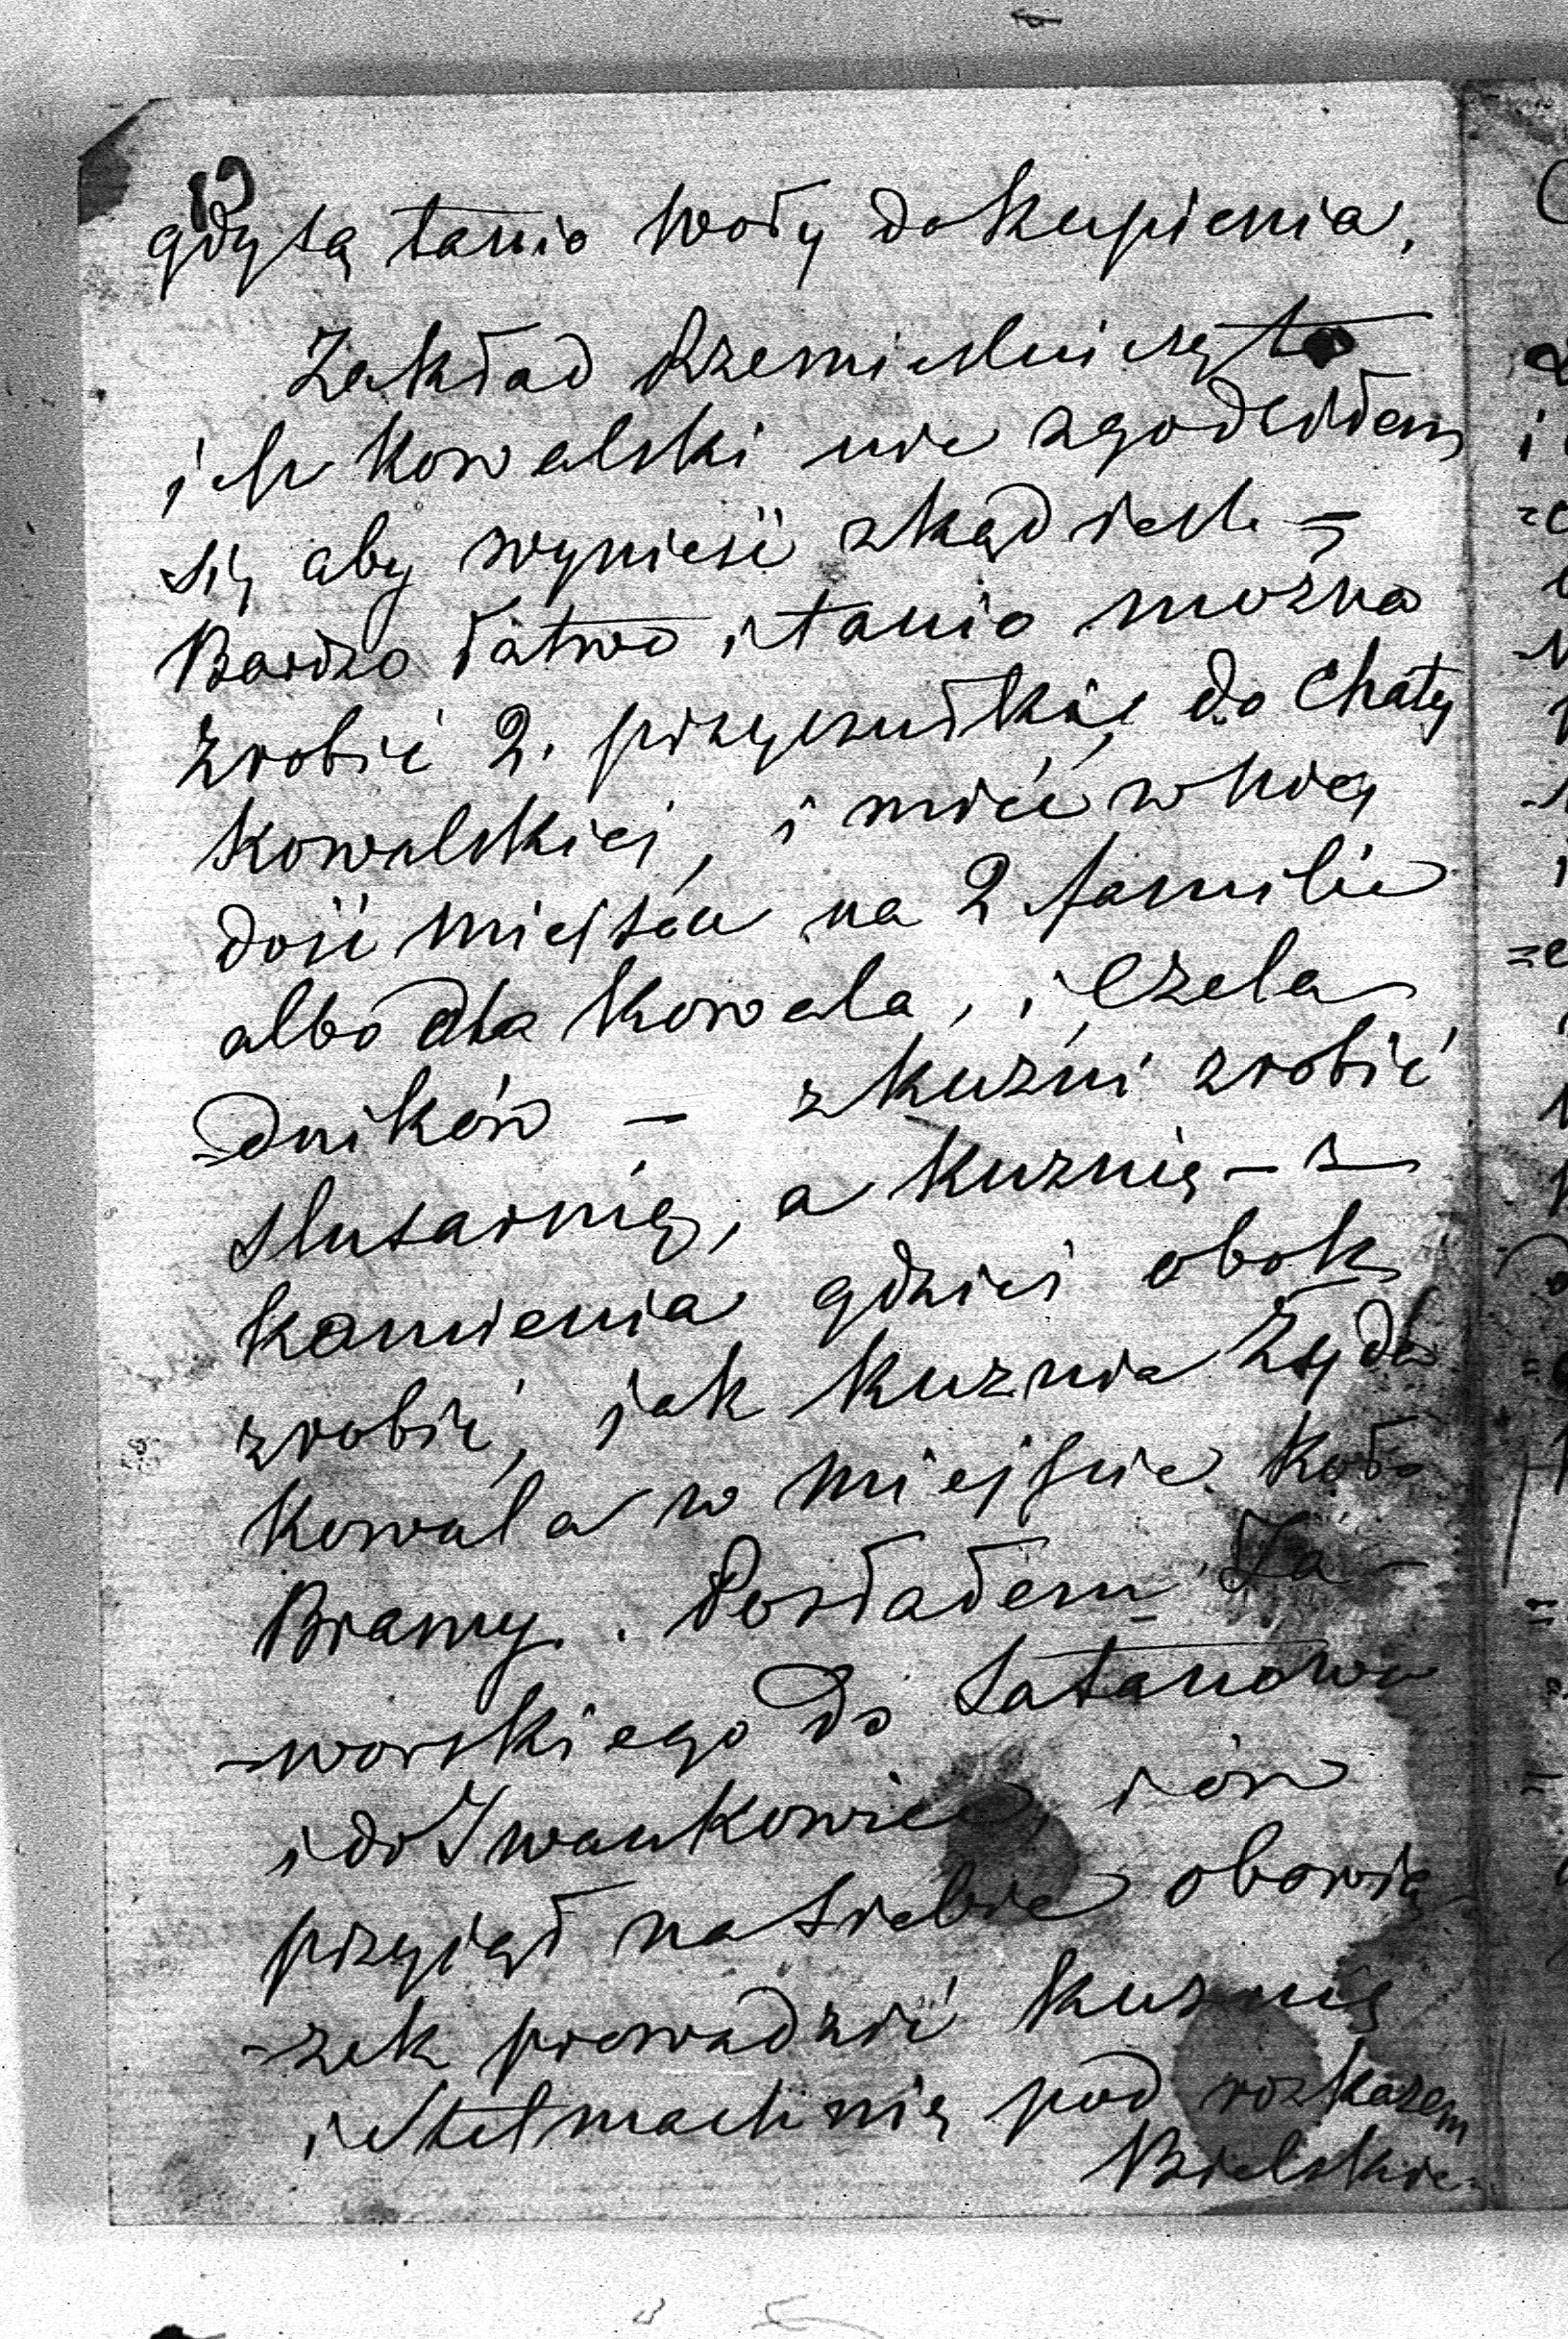 13
gdy są tanio woły do kupienia.
Zakład Rzemieslniczy to
jest kowalski nie zgodziłem
się aby wynieść zkąd jest –
Bardzo łatwo i tanio można
zrobić 2. przyczułkię do Chaty
kowalskiej, i mieć w niej
dość miejsca na 2 familie
albo dla kowala, i Czela
=dników – z kuźni zrobić
slusarnię, a kuznię – z
kamienia gdzieś obok
zrobić, jak kuznia Żyda
kowala w miejscie koło
Bramy. Posłałem Ja-
-worskiego do Satanowa
i do Iwankowiec, i on
przyjął na siebie obowią-
-zek prowadzić kuznię
i Stelmachnię pod rozkazem
Bielskie-